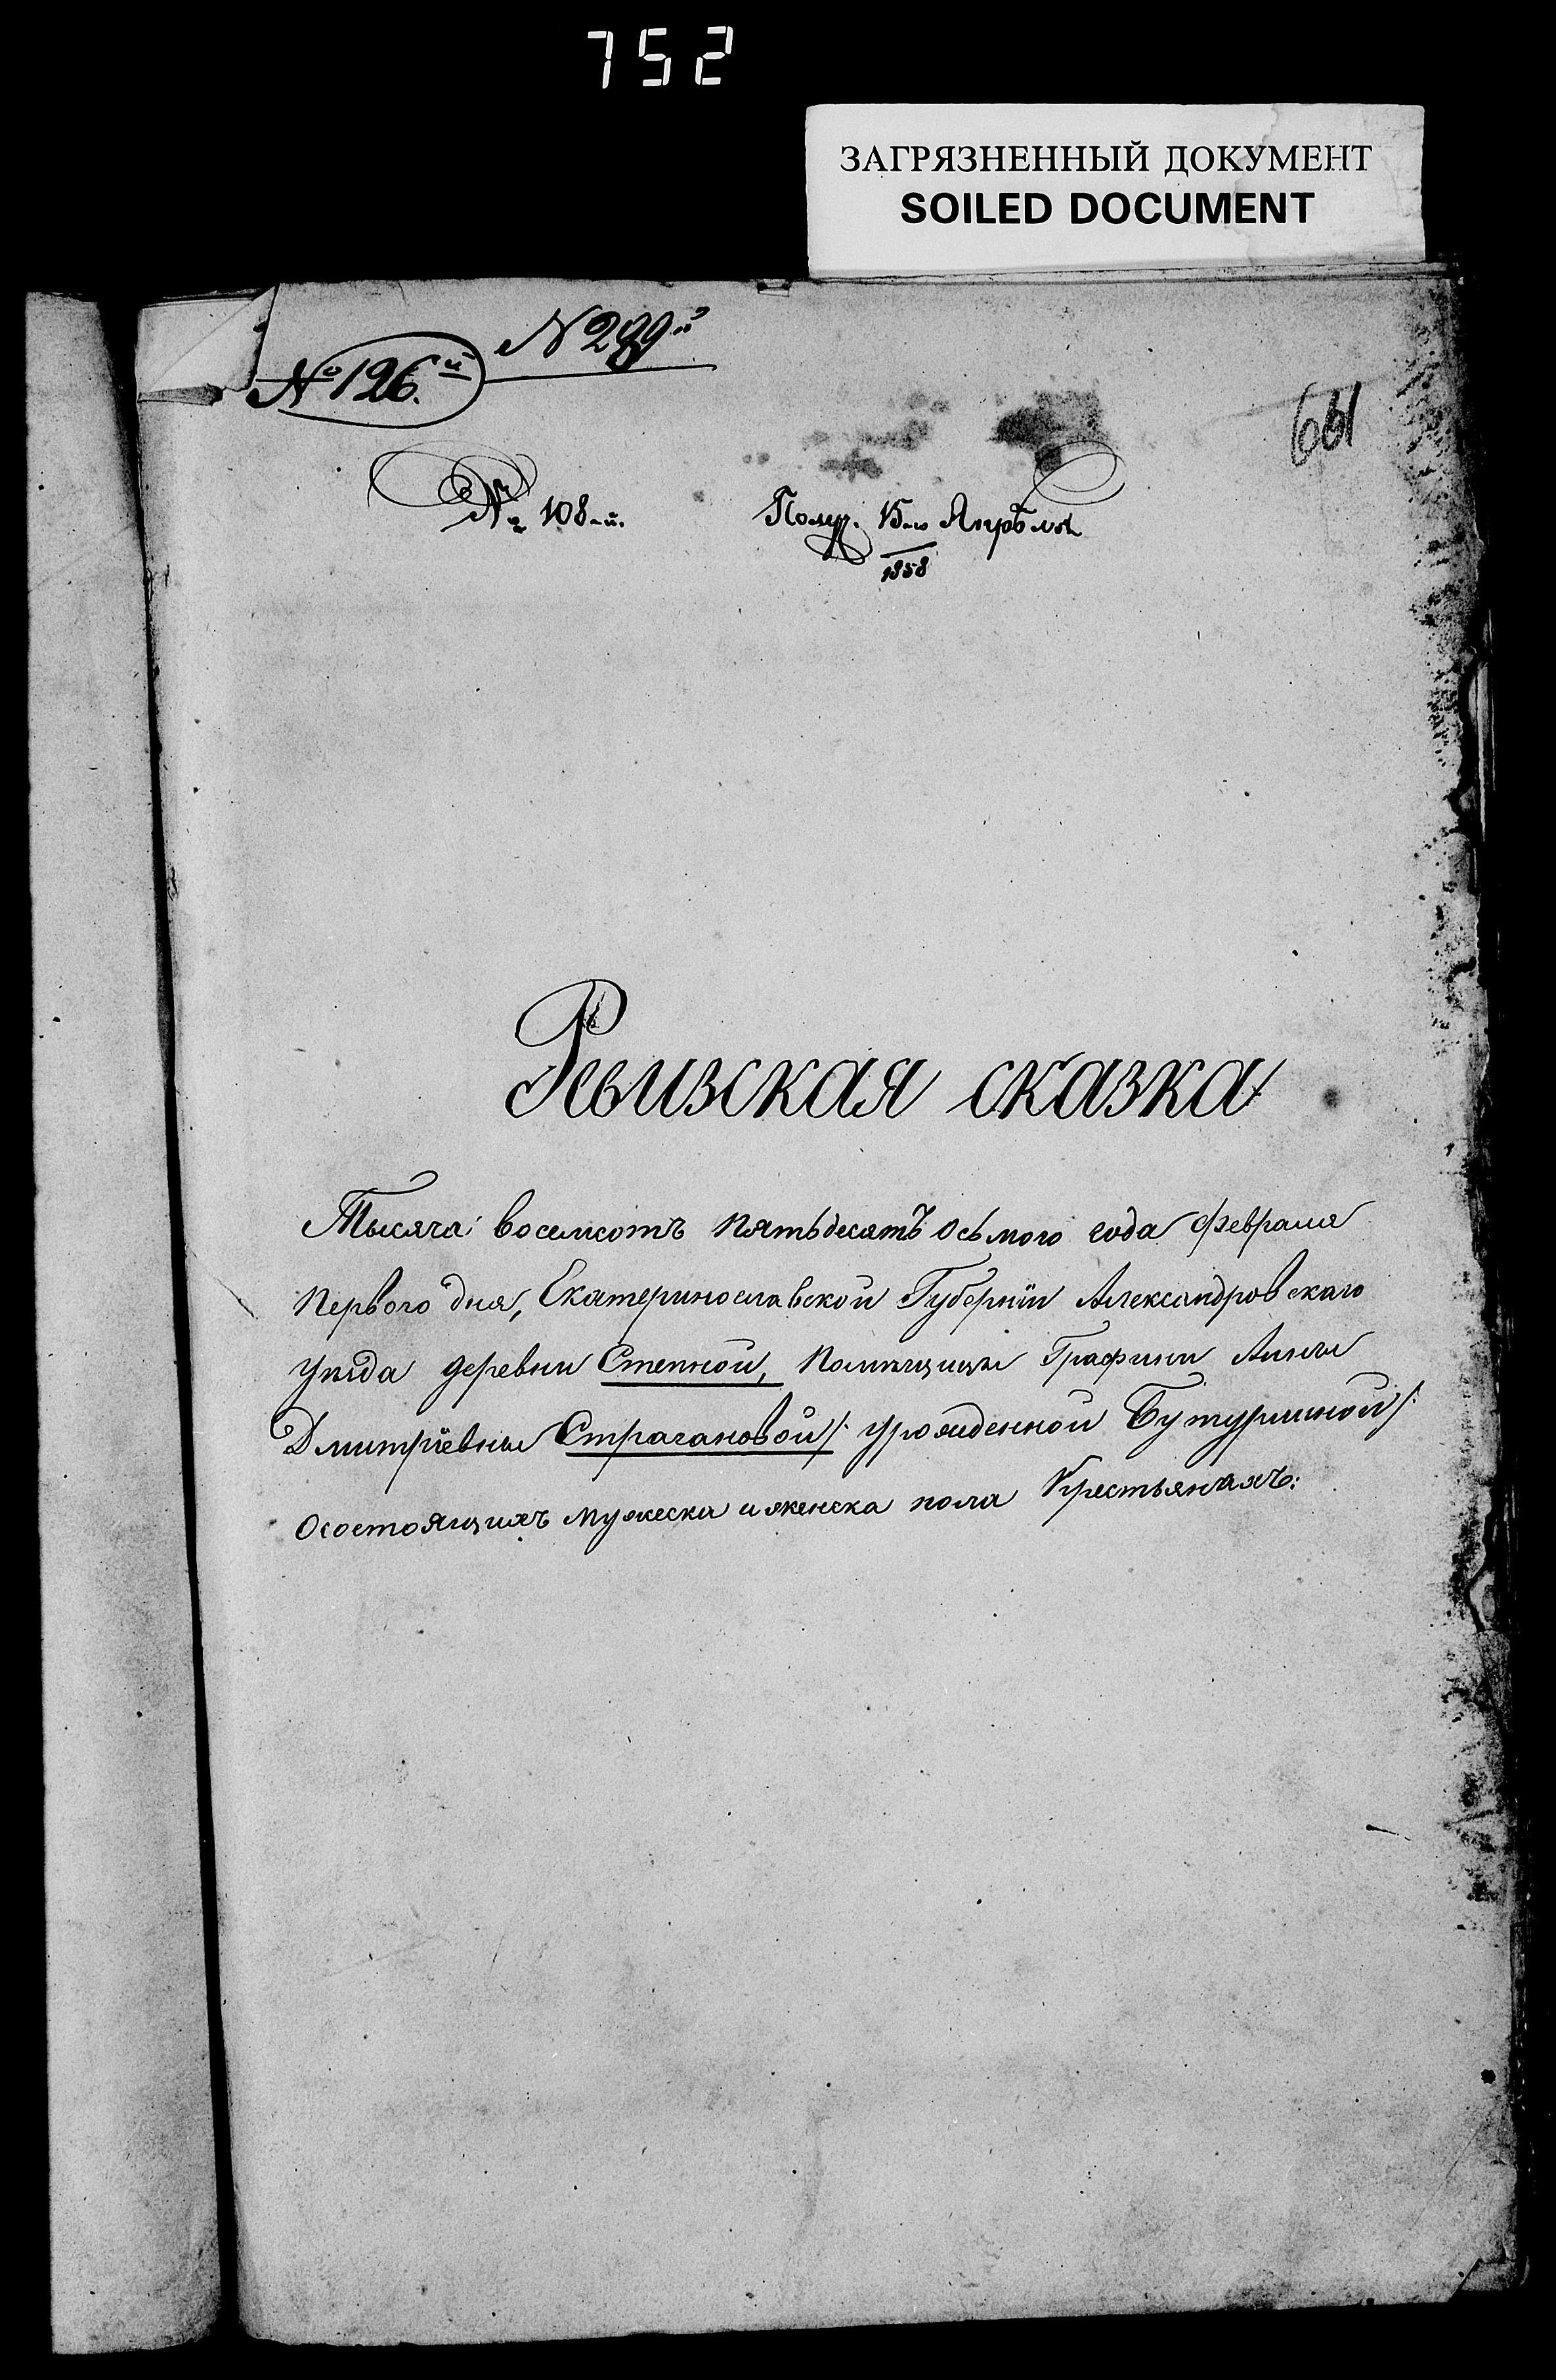 752
ЗАГРЯЗНЕННЫЙ ДОКУМЕНТ
SOILED DOCUMENT
№ 126.й
661
№ 108-й.
Получ. 15-го
1858
Ревизская сказка
Тысяча восемсотъ пятьдесятъ осьмого года февраля
первого дня, Екатеринославской Губернiи Александровскаго
уѣзда деревни Степной, помѣщицы Графини Анны
Дмитрiевны Страгановой /: урожденной Бутурлиной /:
о состоящихъ мужеска и женска пола крестьянахъ: